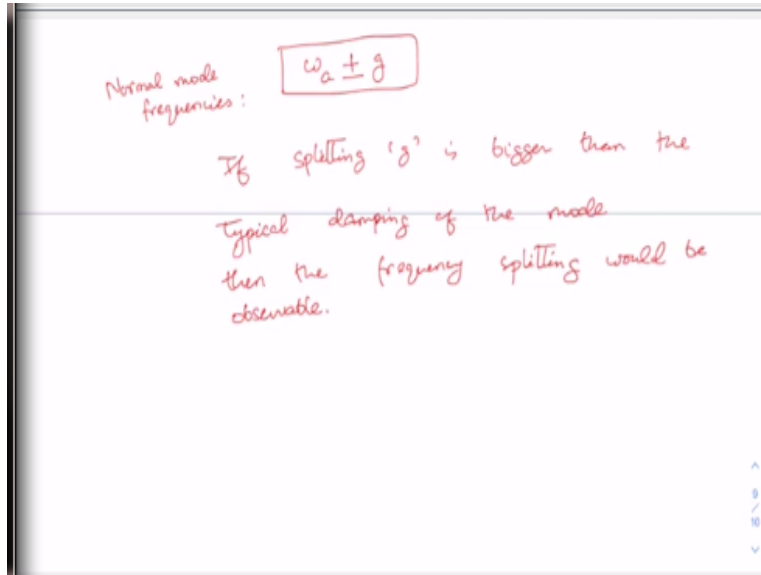 Normal mode
frequencies:
ω_a ± g
If splitting 'g' is bigger than the
Typical damping of the mode
then the frequency splitting would be
observable.
9
/
10